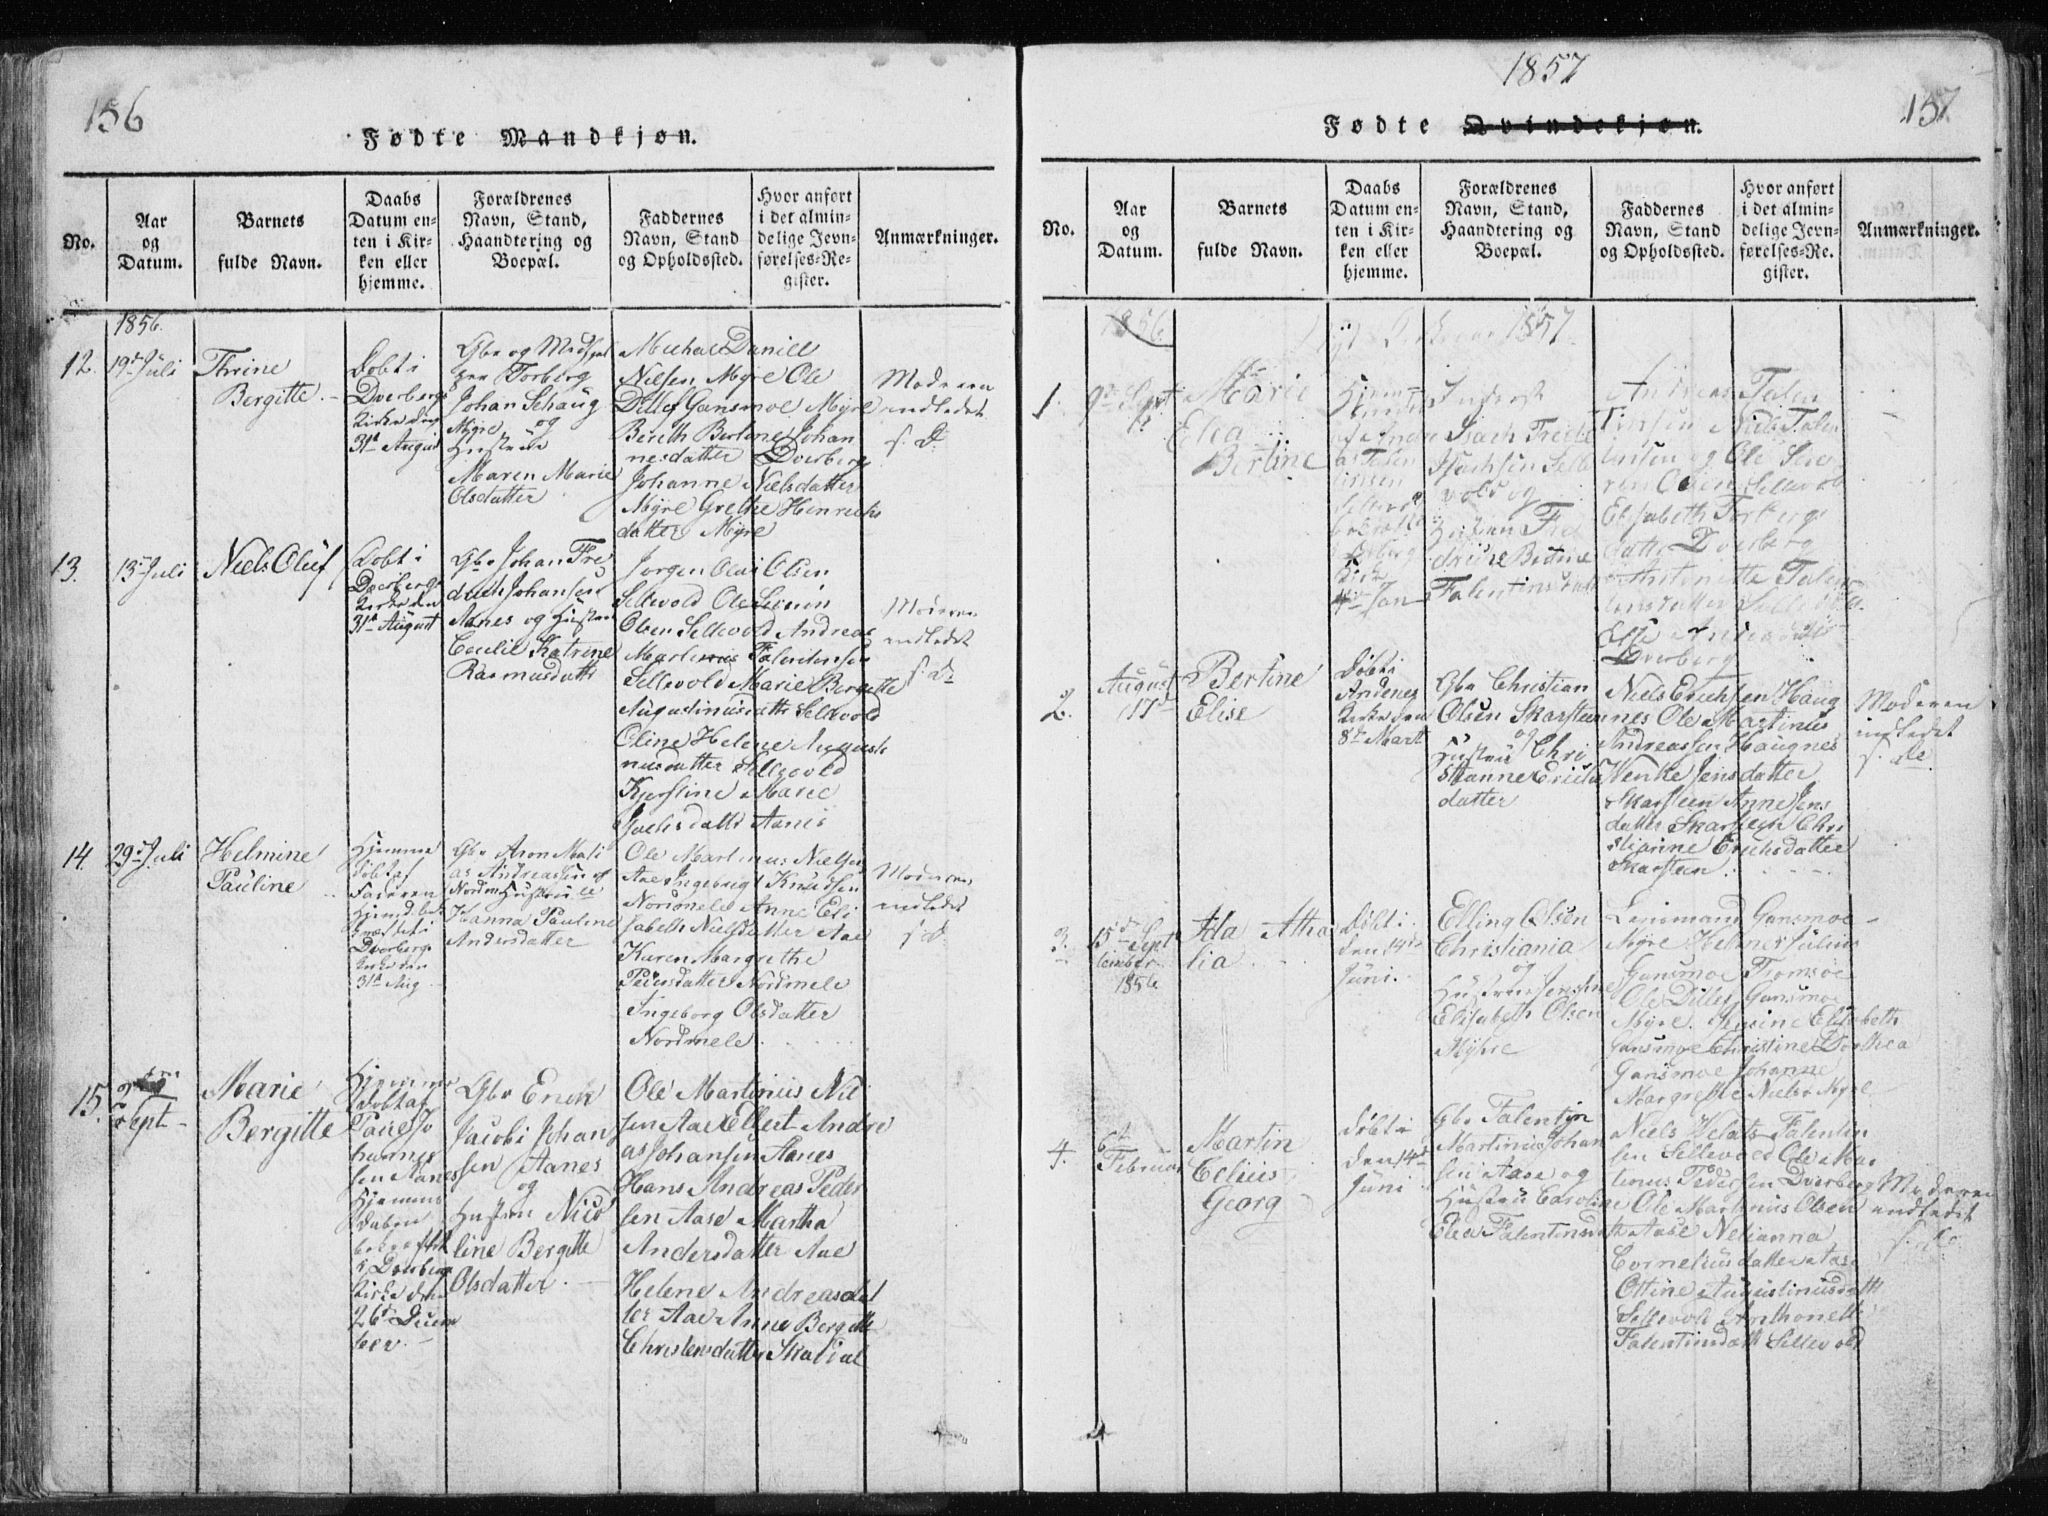 156
Fødte Mandkjøn.
No.
Aar
og
Datum.
Barnets
fulde Navn.
Daabs
Datum en-
ten i Kir-
ken eller
hjemme.
Forældrenes
Navn, Stand,
Haandtering og
Boepæl.
Faddernes
Navn, Stand
og Opholdssted.
Hvor anført
i det almin-
delige Jevn-
førelses-Re-
gister.
Anmærkninger.
1856.
12.
19de Juli
Thrine
Bergitte.
Dobt i
Dverbergs
Kirke den
31te August
Torberg
Johan Schaug
Myre og
Hustrue
Maren Marie
Olsdatter
Michal Daniel
Nilsen Myre Ole
Ditlef Gansmoe Myre
Bereth Berline Johan
nesdatter Dverberg
Johanne Nielsdatter
Myre Grethe Henrichs
datter Myre
Moderen
indledet
s. D.
13.
13de Juli
Niels Oluf
Dobt i
Dverbergs
Kirke den
31te August
Gbr Johan Fre
drich Johansen
Aanes og Hustru
Cecilie Katrine
Rasmusdattr
Jorgen Olai Olsen
Sellevold Ole
Olsen Sellevold Andreas
Falentinsen
Sellevold Marie Bergitte
Augustinusdattr Sellevold
Oline Helene Augusti
nusdatter Sellevold
Kjerstine Marie
Jochsdattr Aanes
Moderen
indledet
s. D.
14.
29de Juli
Helmine
Pauline
Hjemme
døbt af
Faderen
Hjemd. be
kræftet i
Dverbergs
Kirke den
31te Aug.
Gbr Aron Mati
as Andreassen
Nordm Hustrue
Hanna Pauline
Andersdatter
Ole Martinus Nielsen
Aae Ingebrigt Knudsen
Nordmele Anne Eli
sabeth Nielsdatter Aae
Karen Margrethe
Pedersdatter Nordmele
Ingeborg Olsdatter
Nordmele
Moderen
indledet
s. D.
15.
Sept
Marie
Bergitte
Hjemme
døbt af
hannes
sen Aanes
Hjemme
daaben
bekræftet
i Dverberg
Kirke den
26de Decem
ber.
Gbr Erick
Jacobi Johan
sen Aanes
og
Hustru Nico
line Bergitte
Olsdatter.
Ole Martinius Nil
sen Aae Ellert Andre
as Johansen Aanes
Hans Andreas Peder
sen Aase Martha
Andersdatter Aae
Helene Andreasdat
ter Aae Anne Bergitte
Christensdatter
1857
157
Fødte Qvindekjøn.
No.
Aar
og
Datum.
Barnets
fulde Navn.
Daabs
Datum en-
ten i Kir-
ken eller
hjemme.
Forældrenes
Navn, Stand,
Haandtering og
Boepæl.
Faddernes
Navn, Stand
og Opholdssted.
Hvor anført
i det almin-
delige Jevn-
førelses-Re-
gister.
Anmærkninger.
1856
1857.
1.
9de Sept
Marie
Elea
Bertine
af Andre
as Falen
tinsen
Sellevold
Dverberg
Kirk
4de Jan
Inderst
Isach Fredr
Isachsen Selle
vold og
Hustru Fre
drine Birthe
Falentinsdatt
Andreas Falen
tinsen Niels Falen
tinsen og Ole Seve
ren Olsen Sellevold
Elisabeth Torbergs
datter Dverberg
Antonette Falen
tinsdatter Sellevold.
Dverberg
2.
August
17de
Bertine
Elise
Døbt i
Andenes
Kirke den
8de Mart
Gbr Christian
Olsen Skarsteen
og
Hustru Chri
stianne Erichs
datter
Niels Erichsen Haug
nes Ole Martinius
Andreassen Haugnes
Wenke Jensdatter
Skarsteen Anne Jens
datter Skarsteen Chri
stianne Erichsdatter
Skarsteen
Moderen
indledet
s. De.
3.
15de Sept
tember
1856
Ada Atha
lia
Døbt i
den 14de
Juni.
Elling Olsen
Christiania
og
Hustru Jensine
Elisabeth Olsen
Myhre
Lensmand Gansmoe
Myre Helmer Julius
Gansmoe Tromsøe
Ole Ditlef Gansmoe
Myre. Jensine Elisabeth
Gansmoe Christine Dorthea
Gansmoe Johanne
Margrethe Nielsd Myre
4.
6te
Februar
Martin
Celius
Georg
Døbt i
den 14de
Juni
Gbr Falentin
Martinus Johan
sen Aase og
Hustru Caroline
Elea Falentinsdatt
Niels Falentin
sen Sellevold Ole Mar
tinus Pedersen Dverberg
Ole Martinus Olsen
Aase Nelianna
Corneliusdatter Aase
Ottine Augustinusdattr
Sellevold Anthonette
Falentinsdattr Sellevold
Moderen
indledet
s. De.